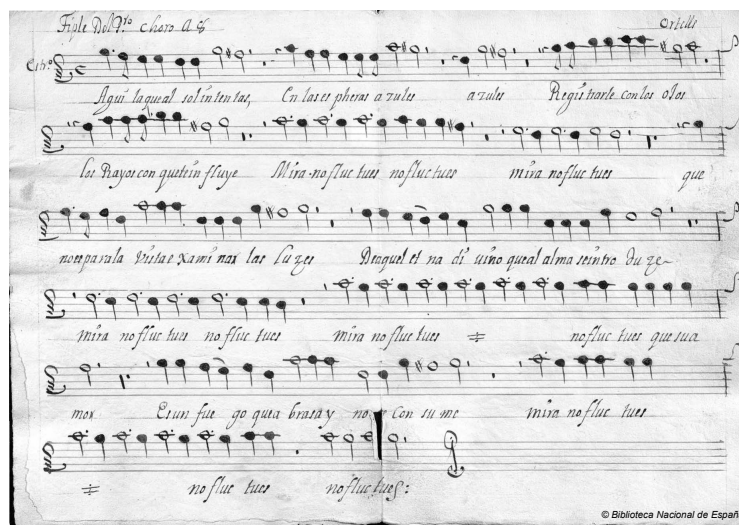 Tiple Del 1.ro choro A 8 Ortells
Aqui la que al sol intentas, En las espheras azules azules Registrarte con los ojos
los Rayos con que te in fluye Mira no fluc tues no fluc tues mira no fluc tues que
no es para la vista exa mi nar las lu zes De aquel et na di uino que al alma se intro du ze
mira no fluc tues no fluc tues mira no fluc tues no fluc tues que su a
mor Es un fue go que a brasa y no Con su me mira no fluc tues
no fluc tues no fluc tues:
© Biblioteca Nacional de Españ